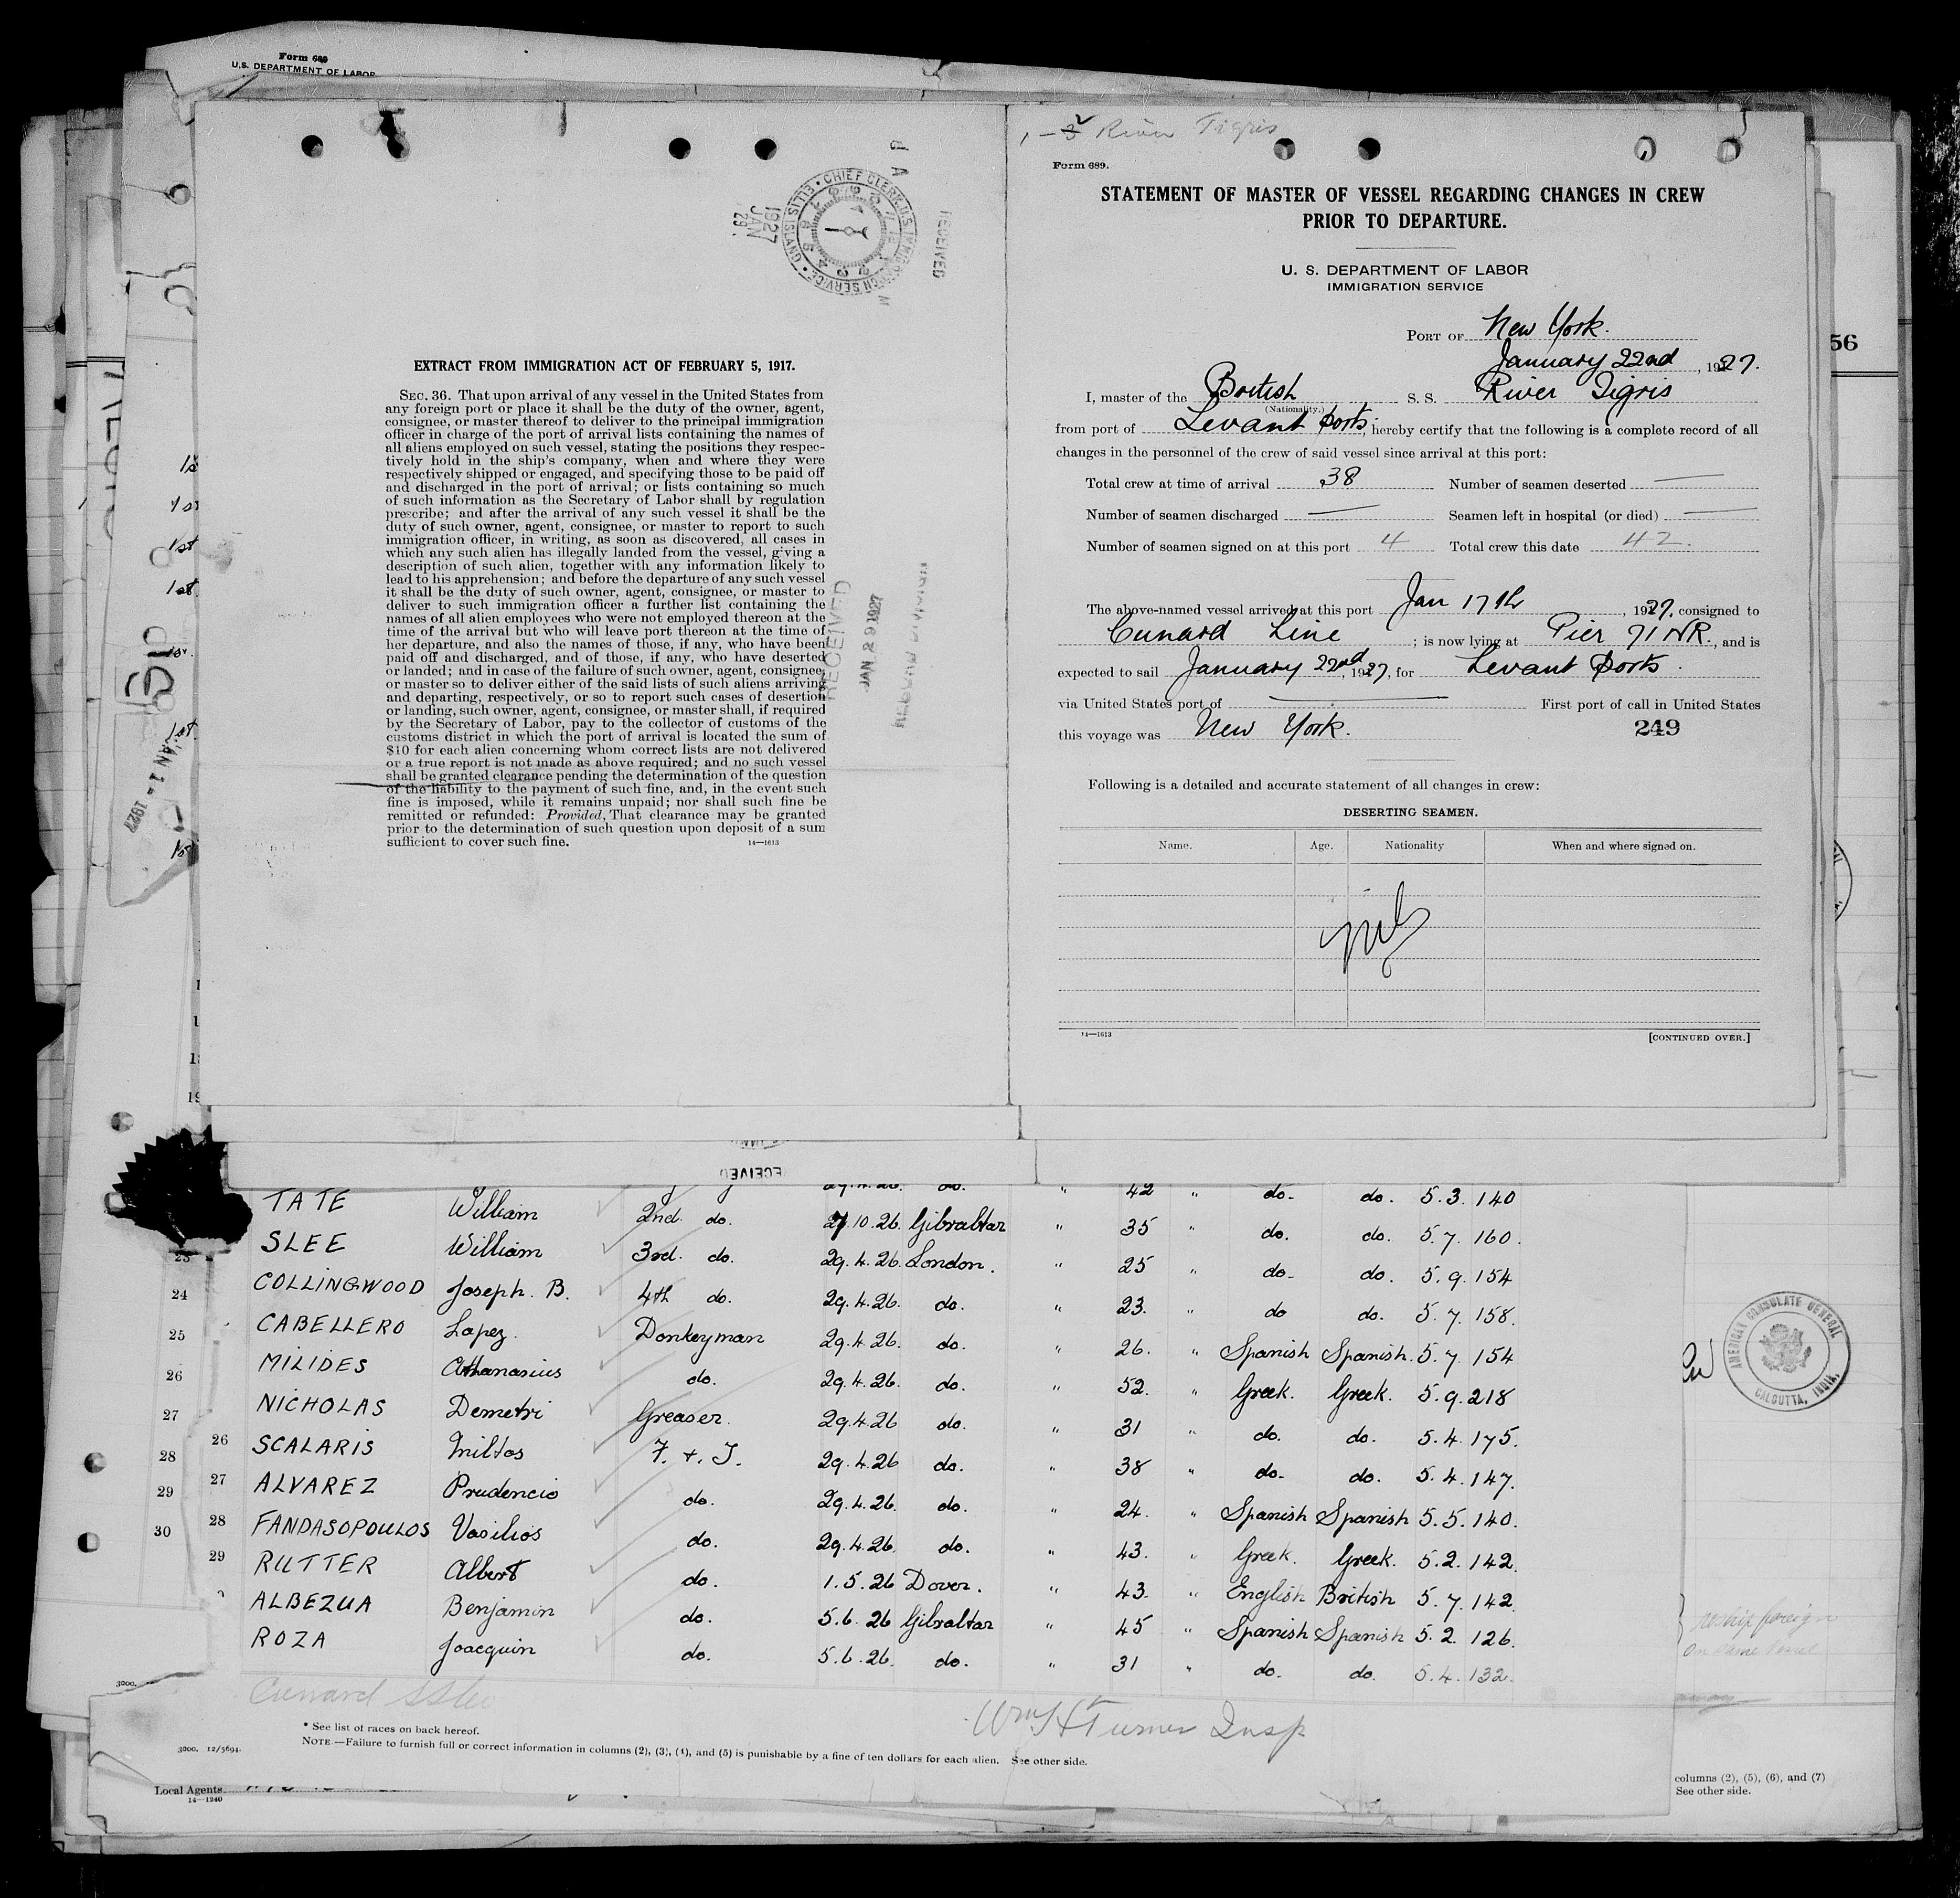 Form 689
U.S. DEPARTMENT OF LABOR
RECEIVED
CHIEF CLERK, U.S. IMMIGRATION SERVICE • ELLIS ISLAND •
1927 JAN 29
EXTRACT FROM IMMIGRATION ACT OF FEBRUARY 5, 1917.
SEC. 36. That upon arrival of any vessel in the United States from
any foreign port or place it shall be the duty of the owner, agent,
consignee, or master thereof to deliver to the principal immigration
officer in charge of the port of arrival lists containing the names of
all aliens employed on such vessel, stating the positions they respec-
tively hold in the ship's company, when and where they were
respectively shipped or engaged, and specifying those to be paid off
and discharged in the port of arrival; or lists containing so much
of such information as the Secretary of Labor shall by regulation
prescribe; and after the arrival of any such vessel it shall be the
duty of such owner, agent, consignee, or master to report to such
immigration officer, in writing, as soon as discovered, all cases in
which any such alien has illegally landed from the vessel, giving a
description of such alien, together with any information likely to
lead to his apprehension; and before the departure of any such vessel
it shall be the duty of such owner, agent, consignee, or master to
deliver to such immigration officer a further list containing the
names of all alien employees who were not employed thereon at the
time of the arrival but who will leave port thereon at the time of
her departure, and also the names of those, if any, who have been
paid off and discharged, and of those, if any, who have deserted
or landed; and in case of the failure of such owner, agent, consignee,
or master so to deliver either of the said lists of such aliens arriving
and departing, respectively, or so to report such cases of desertion
or landing, such owner, agent, consignee, or master shall, if required
by the Secretary of Labor, pay to the collector of customs of the
customs district in which the port of arrival is located the sum of
$10 for each alien concerning whom correct lists are not delivered
or a true report is not made as above required; and no such vessel
shall be granted clearance pending the determination of the question
of the liability to the payment of such fine, and, in the event such
fine is imposed, while it remains unpaid; nor shall such fine be
remitted or refunded: Provided, That clearance may be granted
prior to the determination of such question upon deposit of a sum
sufficient to cover such fine.
14—1613
RECEIVED
JAN 29 1927
River Tigris
Form 689.
STATEMENT OF MASTER OF VESSEL REGARDING CHANGES IN CREW
PRIOR TO DEPARTURE.
U. S. DEPARTMENT OF LABOR
IMMIGRATION SERVICE
PORT OF New York.
January 22nd, 1927.
I, master of the British S. S. River Tigris
(Nationality.)
from port of Levant Ports, hereby certify that the following is a complete record of all
changes in the personnel of the crew of said vessel since arrival at this port:
Total crew at time of arrival 38 Number of seamen deserted —
Number of seamen discharged — Seamen left in hospital (or died) —
Number of seamen signed on at this port 4 Total crew this date 42.
The above-named vessel arrived at this port Jan 17th, 1927, consigned to
Cunard Line; is now lying at Pier 71 NR., and is
expected to sail January 22nd, 1927, for Levant Ports.
via United States port of — First port of call in United States
this voyage was New York. 249
Following is a detailed and accurate statement of all changes in crew:
DESERTING SEAMEN.
Name. Age. Nationality When and where signed on.
Nil
14—1613 [CONTINUED OVER.]
56
RECEIVED
42 " do. do. 5.3. 140
TATE William 2nd. do. 27.10.26. Gibraltar " 35 " do. do. 5.7. 160.
23 SLEE William 3rd. do. 29.4.26. London. " 25 " do. do. 5.9. 154
24 COLLINGWOOD Joseph. B. 4th do. 29.4.26. do. " 23. " do do. 5.7. 158.
25 CABELLERO Lopez. Donkeyman 29.4.26. do. " 26. " Spanish Spanish. 5.7. 154
26 MILIDES Athanasius do. 29.4.26. do. " 52. " Greek. Greek. 5.9. 218
27 NICHOLAS Demetri Greaser. 29.4.26 do. " 31 " do. do. 5.4. 175.
28 26 SCALARIS Miltos F. & T. 29.4.26 do. " 38 " do. do. 5.4. 147.
29 27 ALVAREZ Prudencio do. 29.4.26. do. " 24. " Spanish Spanish 5.5. 140.
30 28 FANDASOPOULOS Vasilios do. 29.4.26. do. " 43. " Greek. Greek. 5.2. 142.
29 RUTTER Albert do. 1.5.26 Dover. " 43. " English British 5.7. 142
ALBEZUA Benjamin do. 5.6.26 Gibraltar " 45 " Spanish Spanish 5.2. 126.
ROZA Joacquin do. 5.6.26. do. " 31 " do. do. 5.4. 132.
AMERICAN CONSULATE GENERAL
CALCUTTA, INDIA.
reship foreign
on same vessel
3000.
Cunard SS Co
Wm H Turner Insp
* See list of races on back hereof.
3000. 12/5694. NOTE.—Failure to furnish full or correct information in columns (2), (3), (4), and (5) is punishable by a fine of ten dollars for each alien. See other side.
Local Agents
14—1240
columns (2), (5), (6), and (7)
See other side.